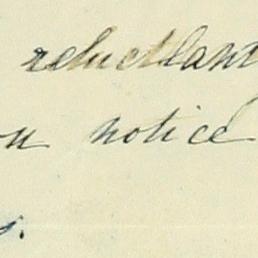 reluctant
notice